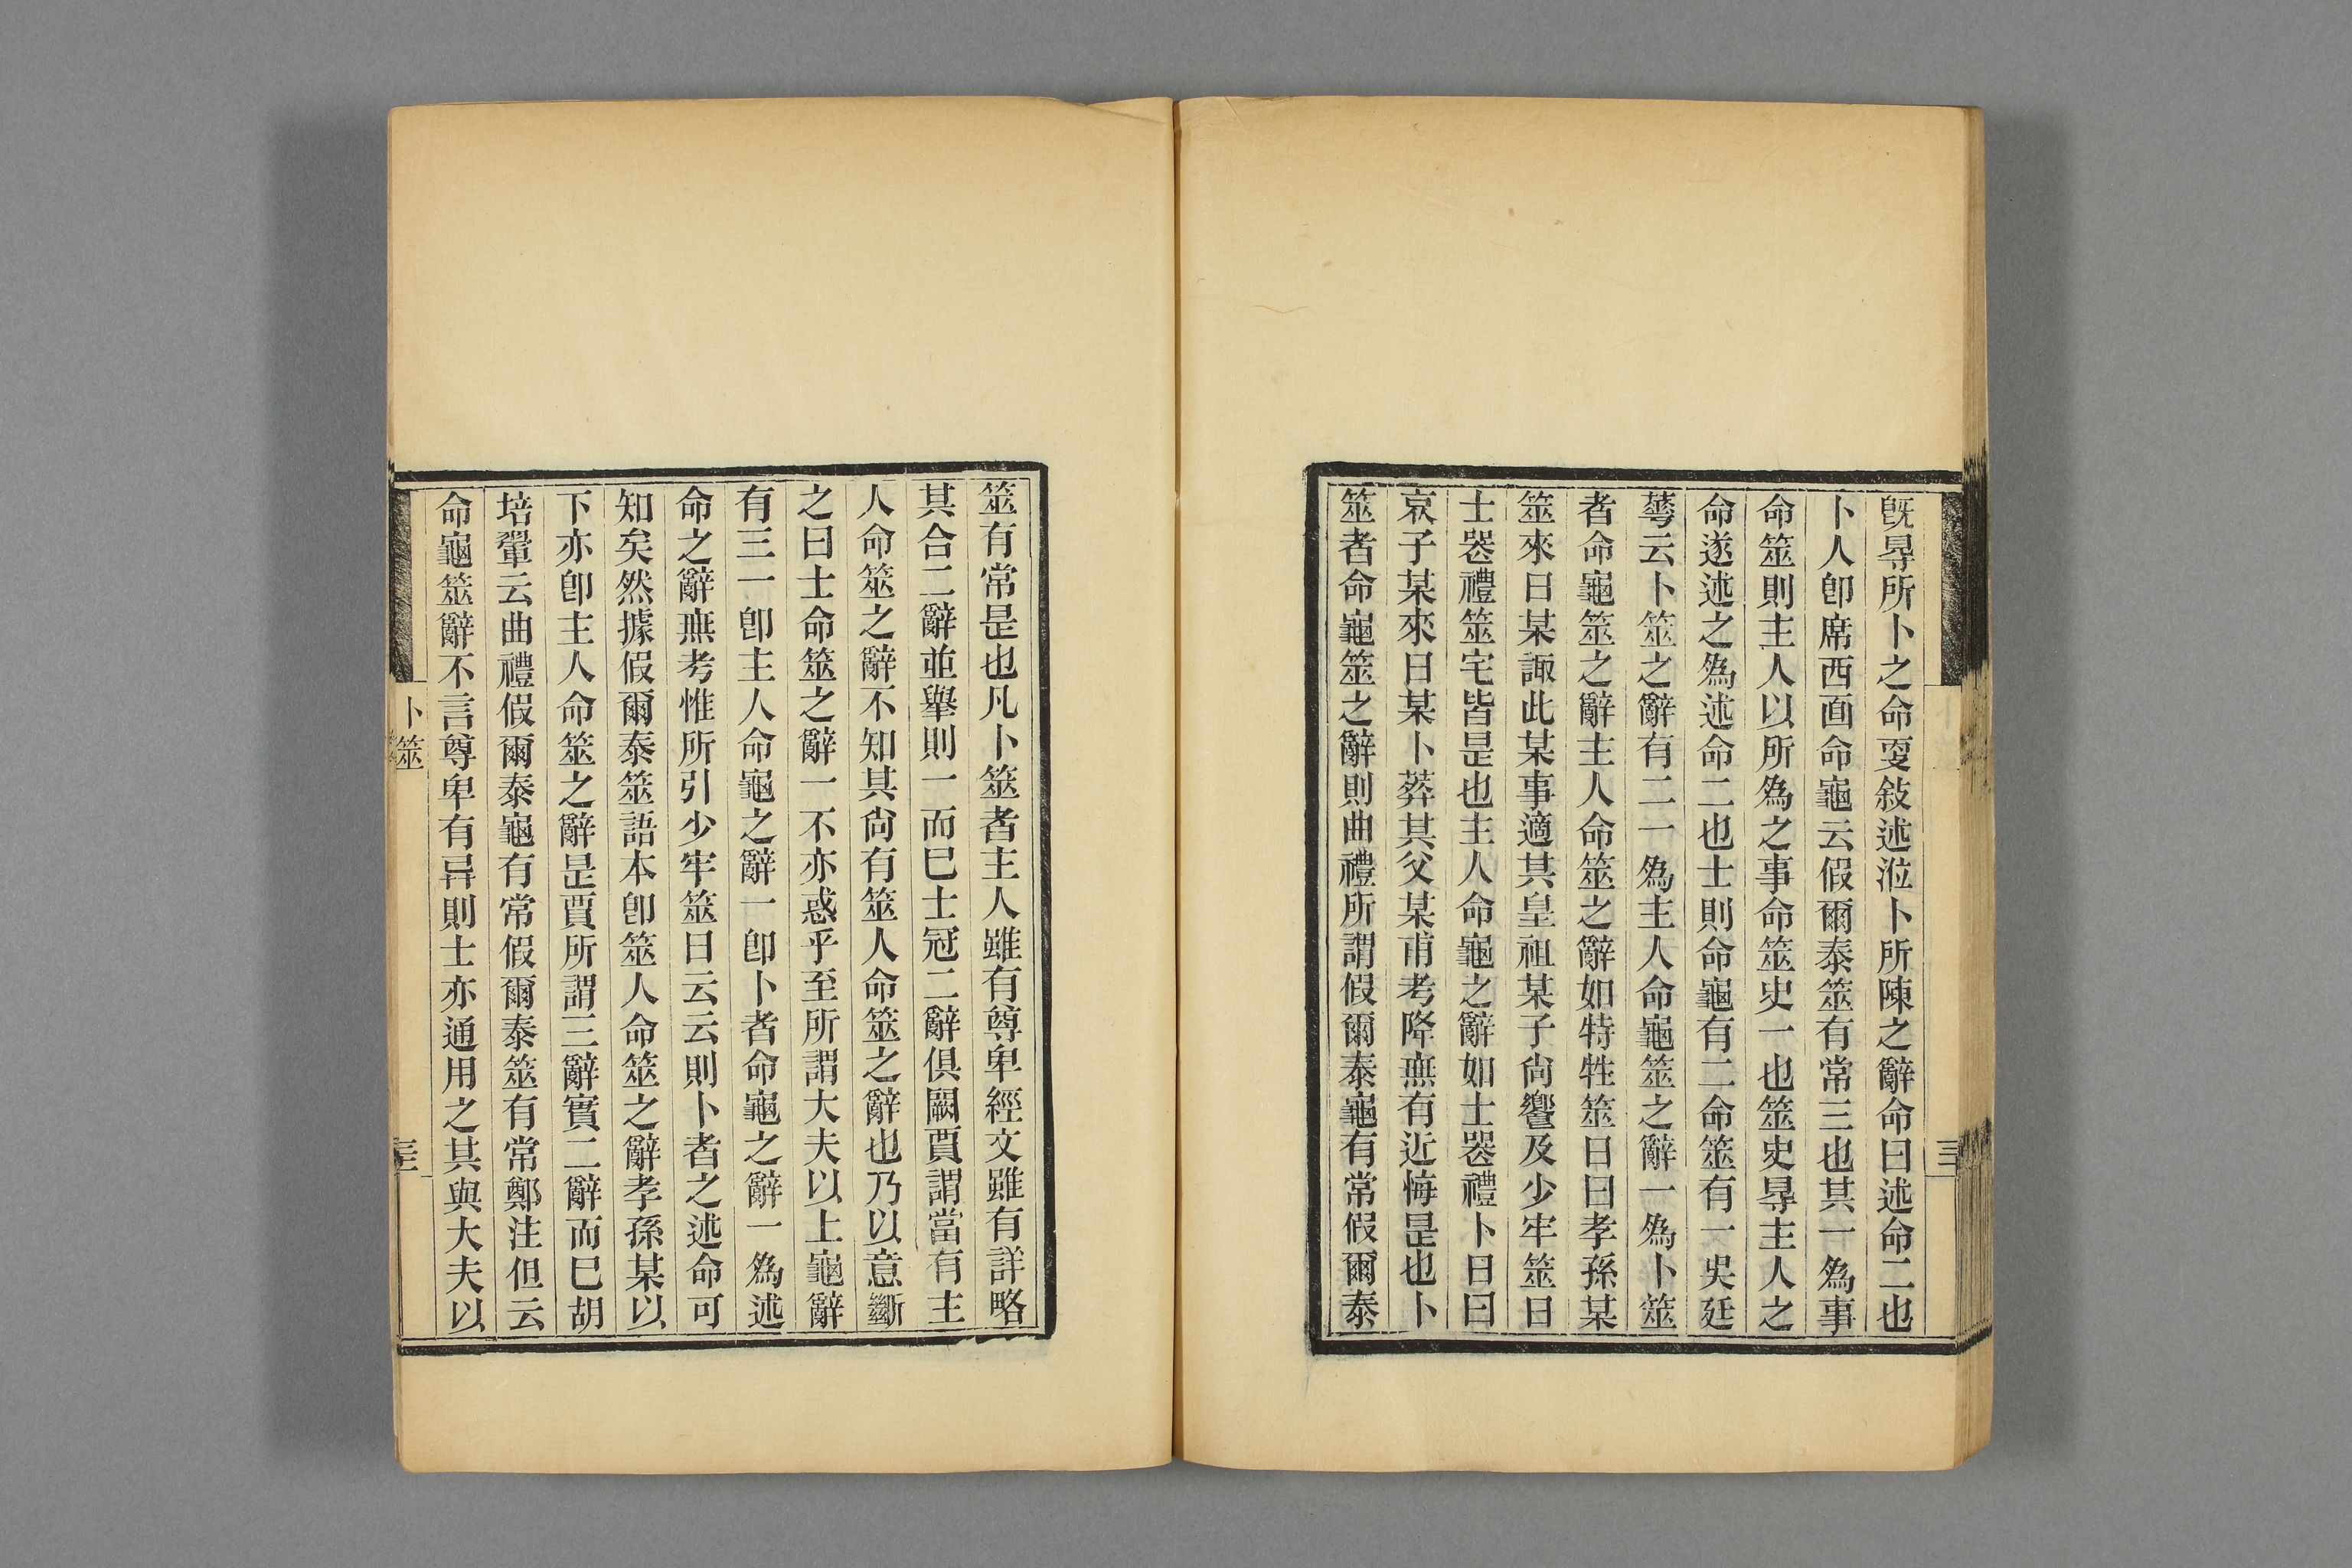 旣㝵所卜之命㪅敍述涖卜所陳之辭命曰述命二也
卜人卽席西面命龜云假爾泰筮有常三也其一爲事
命筮則主人以所爲之事命筮史一也筮史㝵主人之
命遂述之爲述命二也士則命龜有二命筮有一吳廷
蕚云卜筮之辭有二一爲主人命龜筮之辭一爲卜筮
者命龜筮之辭主人命筮之辭如特牲筮日曰孝孫某
筮來日某諏此某事適其皇祖某子尙饗及少牢筮日
士喪禮筮宅皆是也主人命龜之辭如士喪禮卜日曰
哀子某來日某卜葬其父某甫考降無有近悔是也卜
筮者命龜筮之辭則曲禮所謂假爾泰龜有常假爾泰
三
筮有常是也凡卜筮者主人雖有尊卑經文雖有詳略
其合二辭並舉則一而已士冠二辭俱闕賈謂當有主
人命筮之辭不知其尙有筮人命筮之辭也乃以意斷
之曰士命筮之辭一不亦惑乎至所謂大夫以上龜辭
有三一卽主人命龜之辭一卽卜者命龜之辭一爲述
命之辭無考惟所引少牢筮日云云則卜者之述命可
知矣然據假爾泰筮語本卽筮人命筮之辭孝孫某以
下亦卽主人命筮之辭是賈所謂三辭實二辭而已胡
培翬云曲禮假爾泰龜有常假爾泰筮有常鄭注但云
命龜筮辭不言尊卑有异則士亦通用之其與大夫以
卜筮